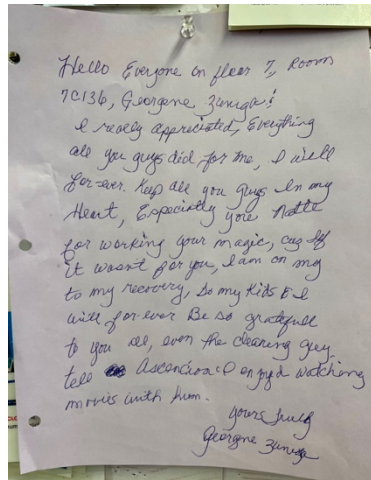 Hello Everyone on floor 7, Room
7C136, Georgene Zuniga!
I really appreciated, Everything
all you guys did for me, I will
for-ever keep all you guys In my
Heart, Especially you Natte
for working your magic, cuz If
it wasn't for you, I am on my
to my recovery, So my Kids & I
will for-ever Be so gratefull
to you all, even the cleaning guy
tell Ascencio I enjoyd watching
movies with him.
yours truly
Georgene Zuniga